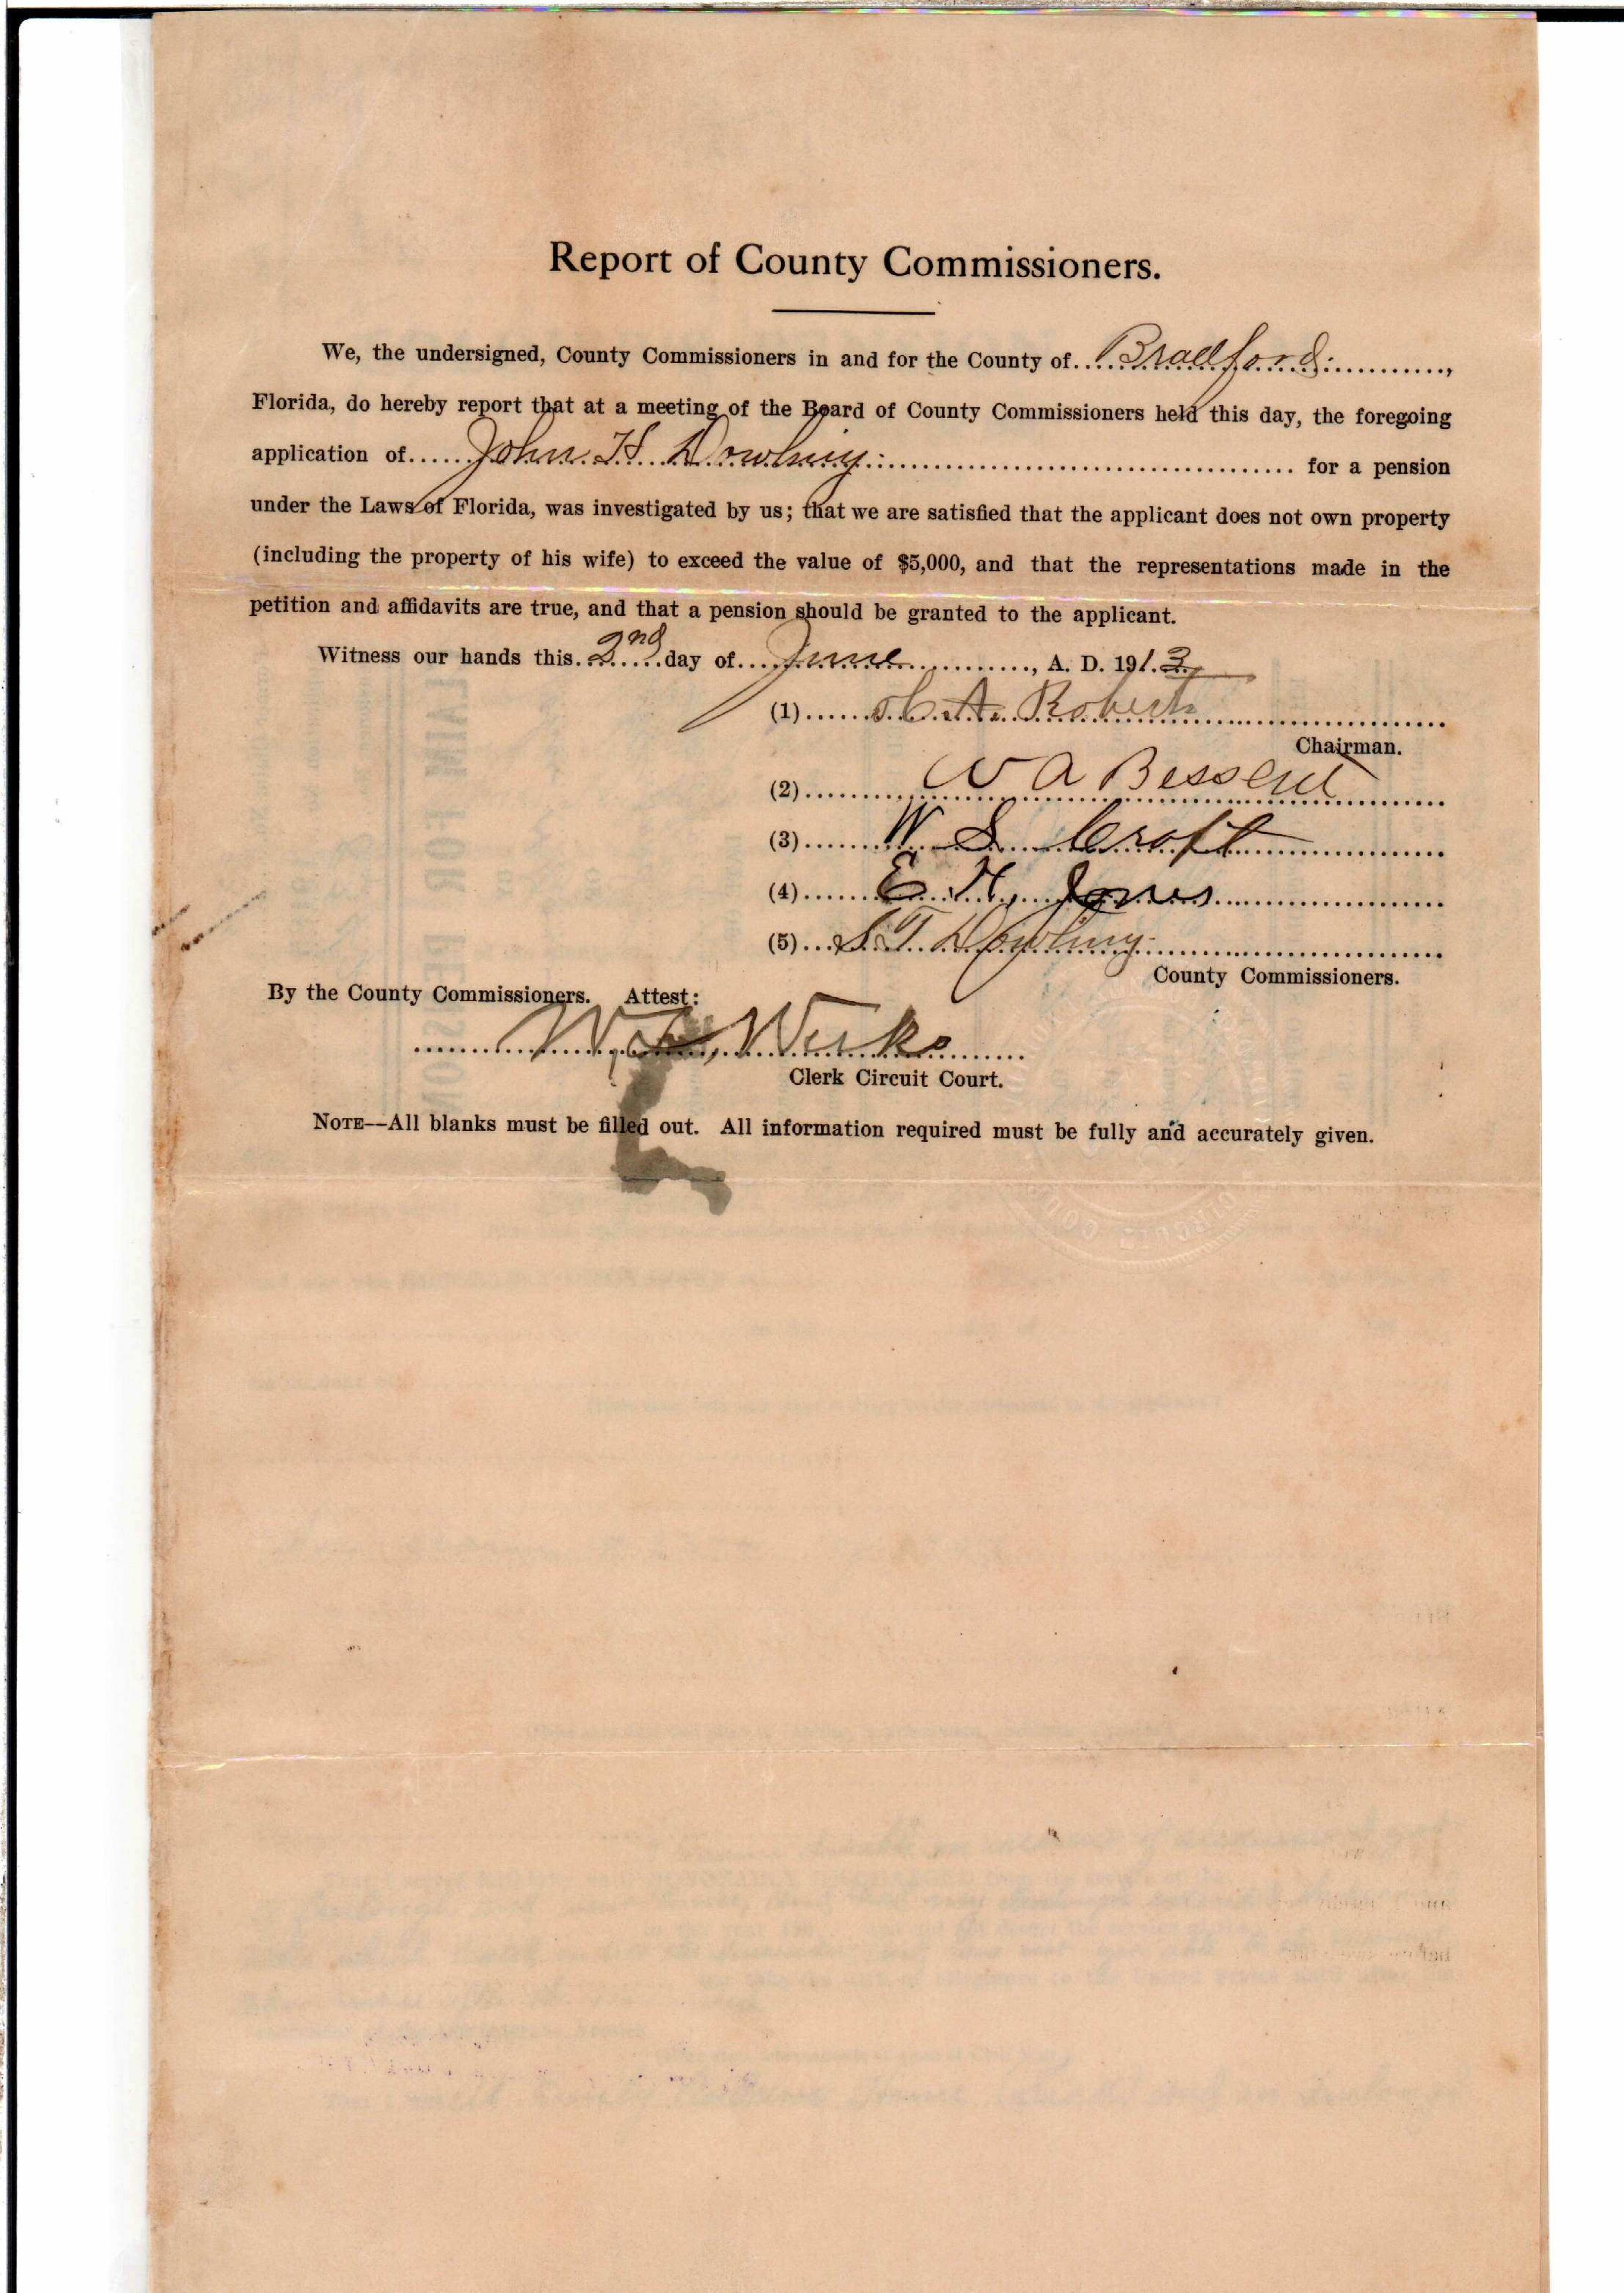 Report of County Commissioners.
We, the undersigned, County Commissioners in and for the County of Bradford,
Florida, do hereby report that at a meeting of the Board of County Commissioners held this day, the foregoing
application of John H. Dowling for a pension
under the Laws of Florida, was investigated by us; that we are satisfied that the applicant does not own property
(including the property of his wife) to exceed the value of $5,000, and that the representations made in the
petition and affidavits are true, and that a pension should be granted to the applicant.
Witness our hands this 2nd day of June, A. D. 1913
(1) A. Roberts
Chairman.
(2) W A Bessent
(3) W. S. Croft
(4) E. H. Jones
(5) S. T. Dowling
County Commissioners.
By the County Commissioners. Attest:
Clerk Circuit Court.
NOTE--All blanks must be filled out. All information required must be fully and accurately given.
CIRCUIT COU